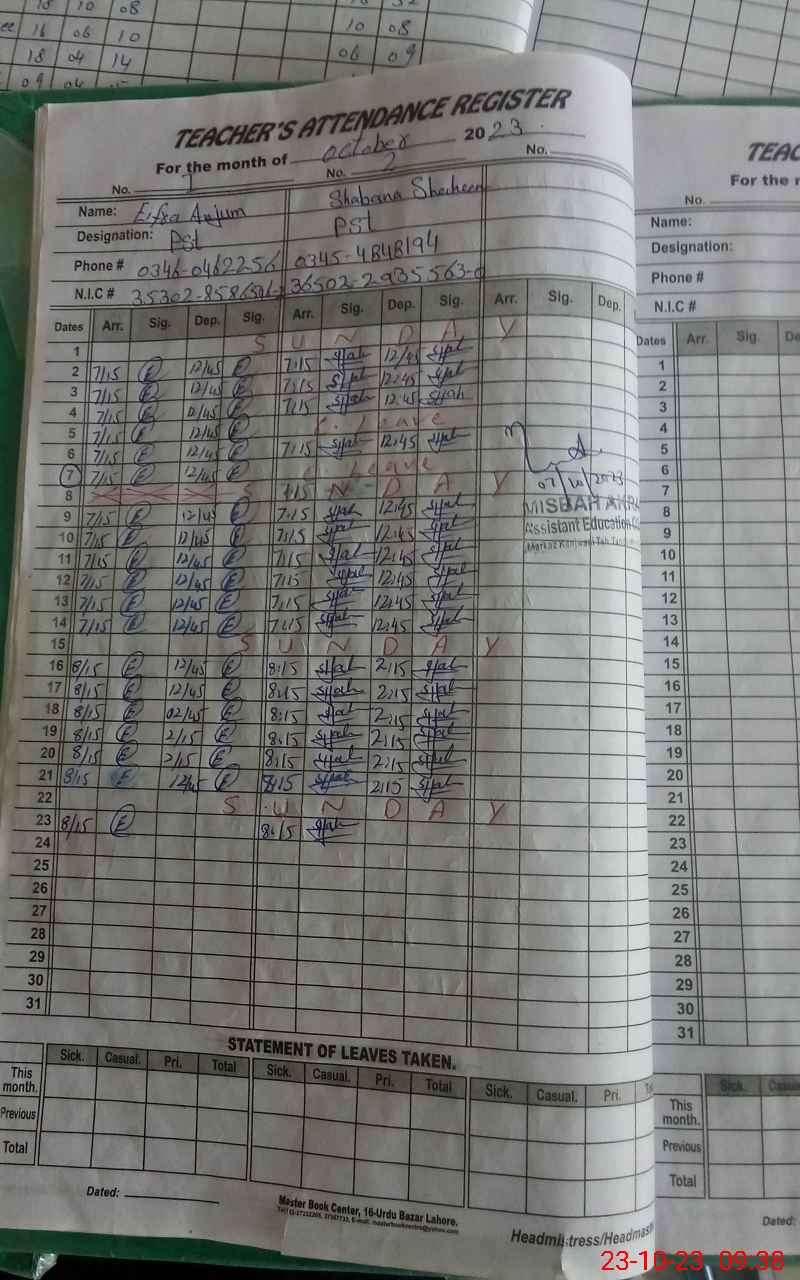 16 06 10
10 08
18 04 14
06 09
TEACHER'S ATTENDANCE REGISTER
For the month of October 2023
No. 1 No. 2 No.
Name: Eifsa Anjum Shabana Shaheen
Designation: PST PST
Phone # 0346-0462256 0345-4848194
N.I.C # 35302-8586596- 36502-2935563-0
Dates Arr. Sig. Dep. Sig. Arr. Sig. Dep. Sig. Arr. Sig. Dep.
1 SUNDAY
2 7/15 E 12/45 E 7:15 12/45
3 7/15 E 12/45 E 7:15 12:45
4 7/15 E 12/45 E 7:15 12:45
5 7/15 E 12/45 E C. Leave
6 7/15 E 12/45 E 7:15 12:45
7 7/15 E 12/45 E C Leave
8 SUNDAY
9 7/15 E 12/45 E 7:15 12:45
10 7/15 E 12/45 E 7:15 12:45
11 7/15 E 12/45 E 7:15 12:45
12 7/15 E 12/45 E 7:15 12:45
13 7/15 E 12/45 E 7:15 12:45
14 7/15 E 12/45 E 7:15 12:45
15 SUNDAY
16 8/15 E 12/45 E 8:15 2:15
17 8/15 E 12/45 E 8:15 2:15
18 8/15 E 02/45 E 8:15 2:15
19 8/15 E 2/15 E 8:15 2:15
20 8/15 E 2/15 E 8:15 2:15
21 8/15 E 12/45 E 8:15 2:15
22 SUNDAY
23 8/15 E 8:15
24
25
26
27
28
29
30
31
07/10/2023
MISBAH
Assistant Education
STATEMENT OF LEAVES TAKEN.
Sick. Casual. Pri. Total Sick. Casual. Pri. Total Sick. Casual. Pri.
This month.
Previous
Total
Dated:
Master Book Center, 16-Urdu Bazar Lahore.
Headmistress/Headmas
TEAC
For the
No.
Name:
Designation:
Phone #
N.I.C #
Dates Arr. Sig. De
1
2
3
4
5
6
7
8
9
10
11
12
13
14
15
16
17
18
19
20
21
22
23
24
25
26
27
28
29
30
31
Sick.
This month.
Previous
Total
Dated:
23-10-23 09:38